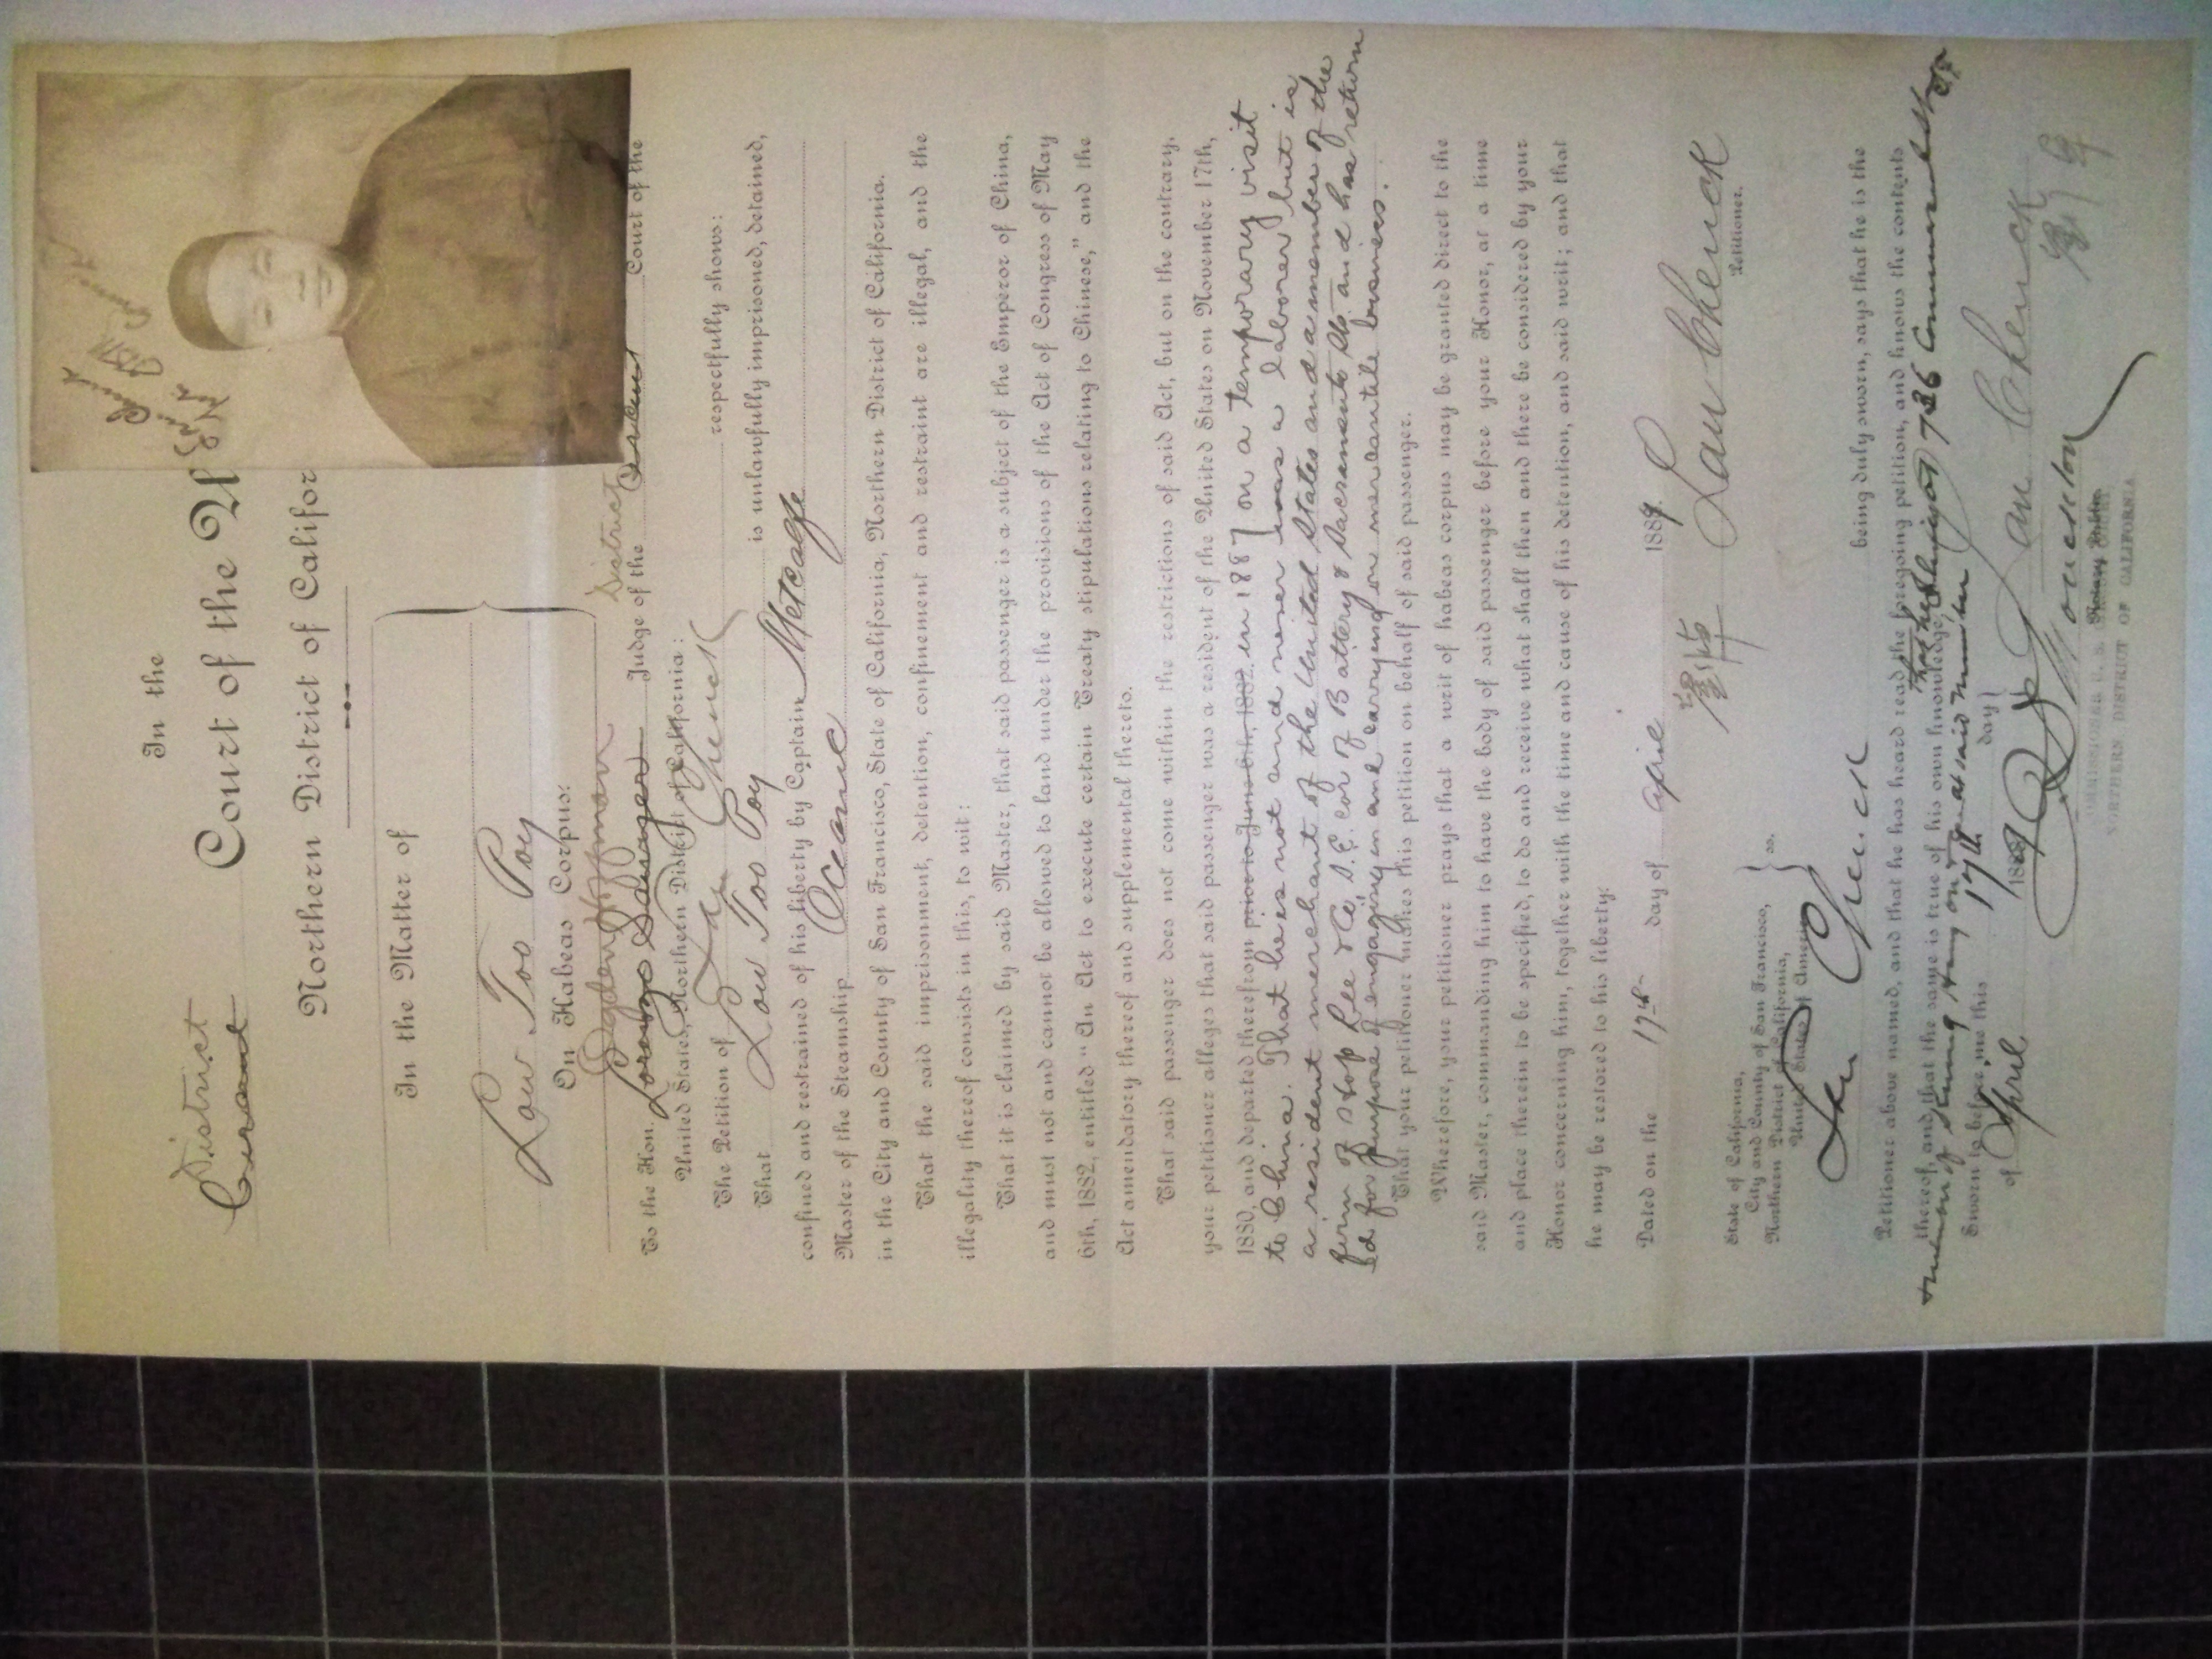 In the
District
Circuit Court of the U
Northern District of Califor
In the Matter of
Low Too Poy
On Habeas Corpus:
District
Ogden Hoffman
To the Hon. Lorenzo Sawyer Judge of the Circuit Court of the
United States, Northern District of California:
The Petition of Lau Chenck respectfully shows:
That Low Too Poy is unlawfully imprisoned, detained,
confined and restrained of his liberty by Captain Metcalfe
Master of the Steamship Oceanic
in the City and County of San Francisco, State of California, Northern District of California.
That the said imprisonment, detention, confinement and restraint are illegal, and the
illegality thereof consists in this, to wit:
That it is claimed by said Master, that said passenger is a subject of the Emperor of China,
and must not and cannot be allowed to land under the provisions of the Act of Congress of May
6th, 1882, entitled "An Act to execute certain Treaty stipulations relating to Chinese," and the
Act amendatory thereof and supplemental thereto.
That said passenger does not come within the restrictions of said Act, but on the contrary,
your petitioner alleges that said passenger was a resident of the United States on November 17th,
1880, and departed therefrom prior to June 6th, 1882. in 1887 on a temporary visit
to China. That he is not and never was a laborer but is
a resident merchant of the United States and a member of the
firm of Hop Lee & Co, S.E. Cor of Battery & Sacramento Sts. and has return
ed for purpose of engaging in and carrying on mercantile business.
That your petitioner makes this petition on behalf of said passenger.
Wherefore, your petitioner prays that a writ of habeas corpus may be granted direct to the
said Master, commanding him to have the body of said passenger before your Honor, at a time
and place therein to be specified, to do and receive what shall then and there be considered by your
Honor concerning him, together with the time and cause of his detention, and said writ; and that
he may be restored to his liberty.
Dated on the 17th day of April 1889.
Lau Chenck
Petitioner.
State of California,
City and County of San Francisco,
Northern District of California,
United States of America
ss.
Lau Chenck being duly sworn, says that he is the
Petitioner above named, and that he has heard read the foregoing petition, and knows the contents
thereof, and that the same is true of his own knowledge, that he 726 Commercial St
of at said number
Sworn to before me this 17th day
of April 1889
Lau Chenck
COMMISSIONER U. S.
NORTHERN DISTRICT OF CALIFORNIA